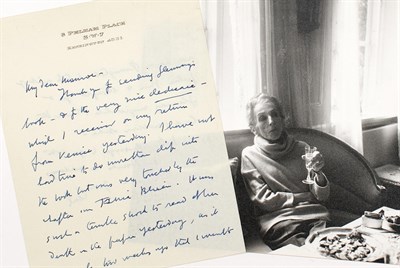 8 PELHAM PLACE
S·W·7
KENSINGTON
My dear Monroe -
Thank you for sending Glenway's
book - & for the very nice dedicace -
which I received on my return
from Venice yesterday. I have not
had time to do more than dip into
the book but was very touched by the
chapter on Blixen. It was
such a terrible shock to read of her
death in the paper yesterday, as it
two weeks ago that I went